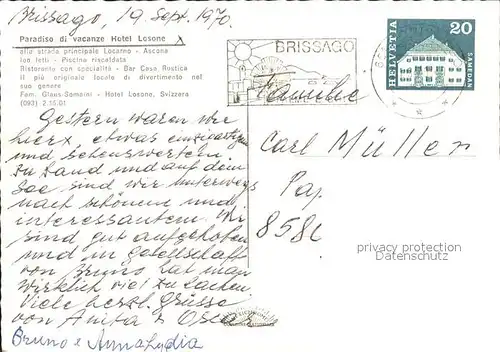 Brissago, 19. Sept. 1970.
Paradiso di vacanze Hotel Losone x
alla strada principale Locarno - Ascona
100 letti - Piscina riscaldata
Ristorante con specialità - Bar Casa Rustica
Il più originale locale di divertimento nel
suo genere
Fam. Glaus-Somaini - Hotel Losone, Svizzera
(093) 2.15.01
BRISSAGO
HELVETIA
20
SAMEDAN
Familie
Carl Müller
Pap.
858
Gestern waren wir
hier x etwas einzigartiges
und sehenswertem.
Zu Land und auf dem
See sind wir unterwegs
nach schönem und
interessantem. Wir
sind gut aufgehoben
und in Gesellschaft
von Bruno hat man
wirklich viel zu lachen
Viele herzl. Grüsse
von Anita & Oscar
Bruno e Annalydia
privacy protection
Datenschutz